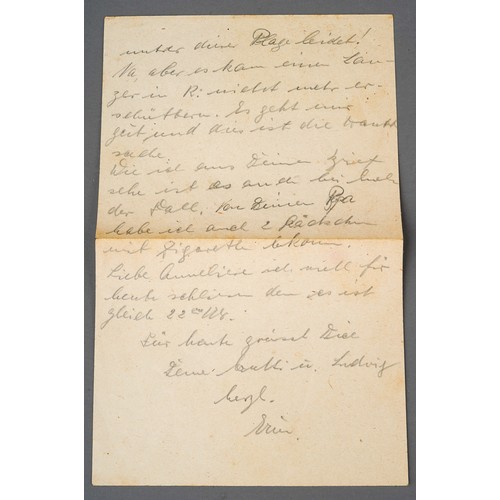 unter dieser Plage leidet!
Na, aber es kam einen Lan-
zer in R. nicht mehr er-
schüttern. Es geht mir
gut und dies ist die Haupt
sache.
Wie ich aus Deiner Brief
sehe ist es auch bei
der Fall. Von Deinen Pa
habe ich auch 2 Päckchen
mit Zigarette bekom.
Liebe Anneliese ich will für
heute schliesen den es ist
gleich 22 Uhr.
Für heute grüsst Dich
Deine Mutti u. Ludwig
herzl.